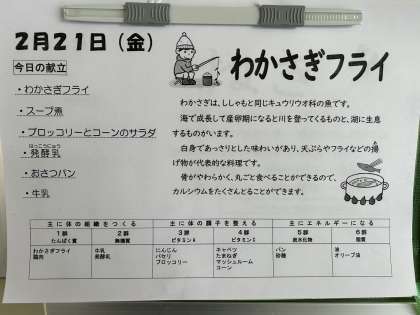 2月21日（金）
今日の献立
・わかさぎフライ
・スープ煮
・ブロッコリーとコーンのサラダ
はっこうにゅう
・発酵乳
・おさつパン
・牛乳
わかさぎフライ
わかさぎは、ししゃもと同じキュウリウオ科の魚です。
海で成長して産卵期になると川を登ってくるものと、湖に生息
するものがいます。
白身であっさりとした味わいがあり、天ぷらやフライなどの揚
げ物が代表的な料理です。
骨がやわらかく、丸ごと食べることができるので、
カルシウムをたくさんとることができます。
主に体の組織をつくる
主に体の調子を整える
主にエネルギーになる
1群 2群 3群 4群 5群 6群
たんぱく質 無機質 ビタミンA ビタミンC 炭水化物 脂質
わかさぎフライ 牛乳 にんじん キャベツ パン 油
鶏肉 発酵乳 パセリ たまねぎ 砂糖 オリーブ油
ブロッコリー マッシュルーム
コーン